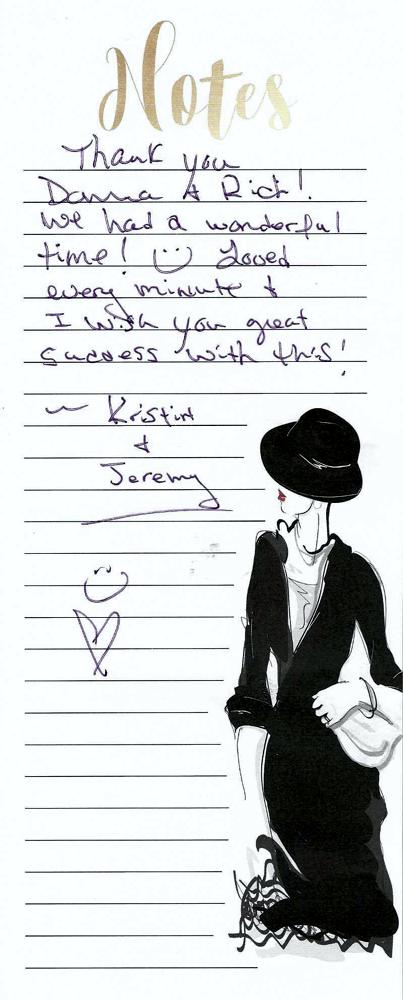 Notes
Thank you
Danna & Rich!
We had a wonderful
time! Loved
every minute &
I wish you great
success with this!
~ Kristin
&
Jeremy